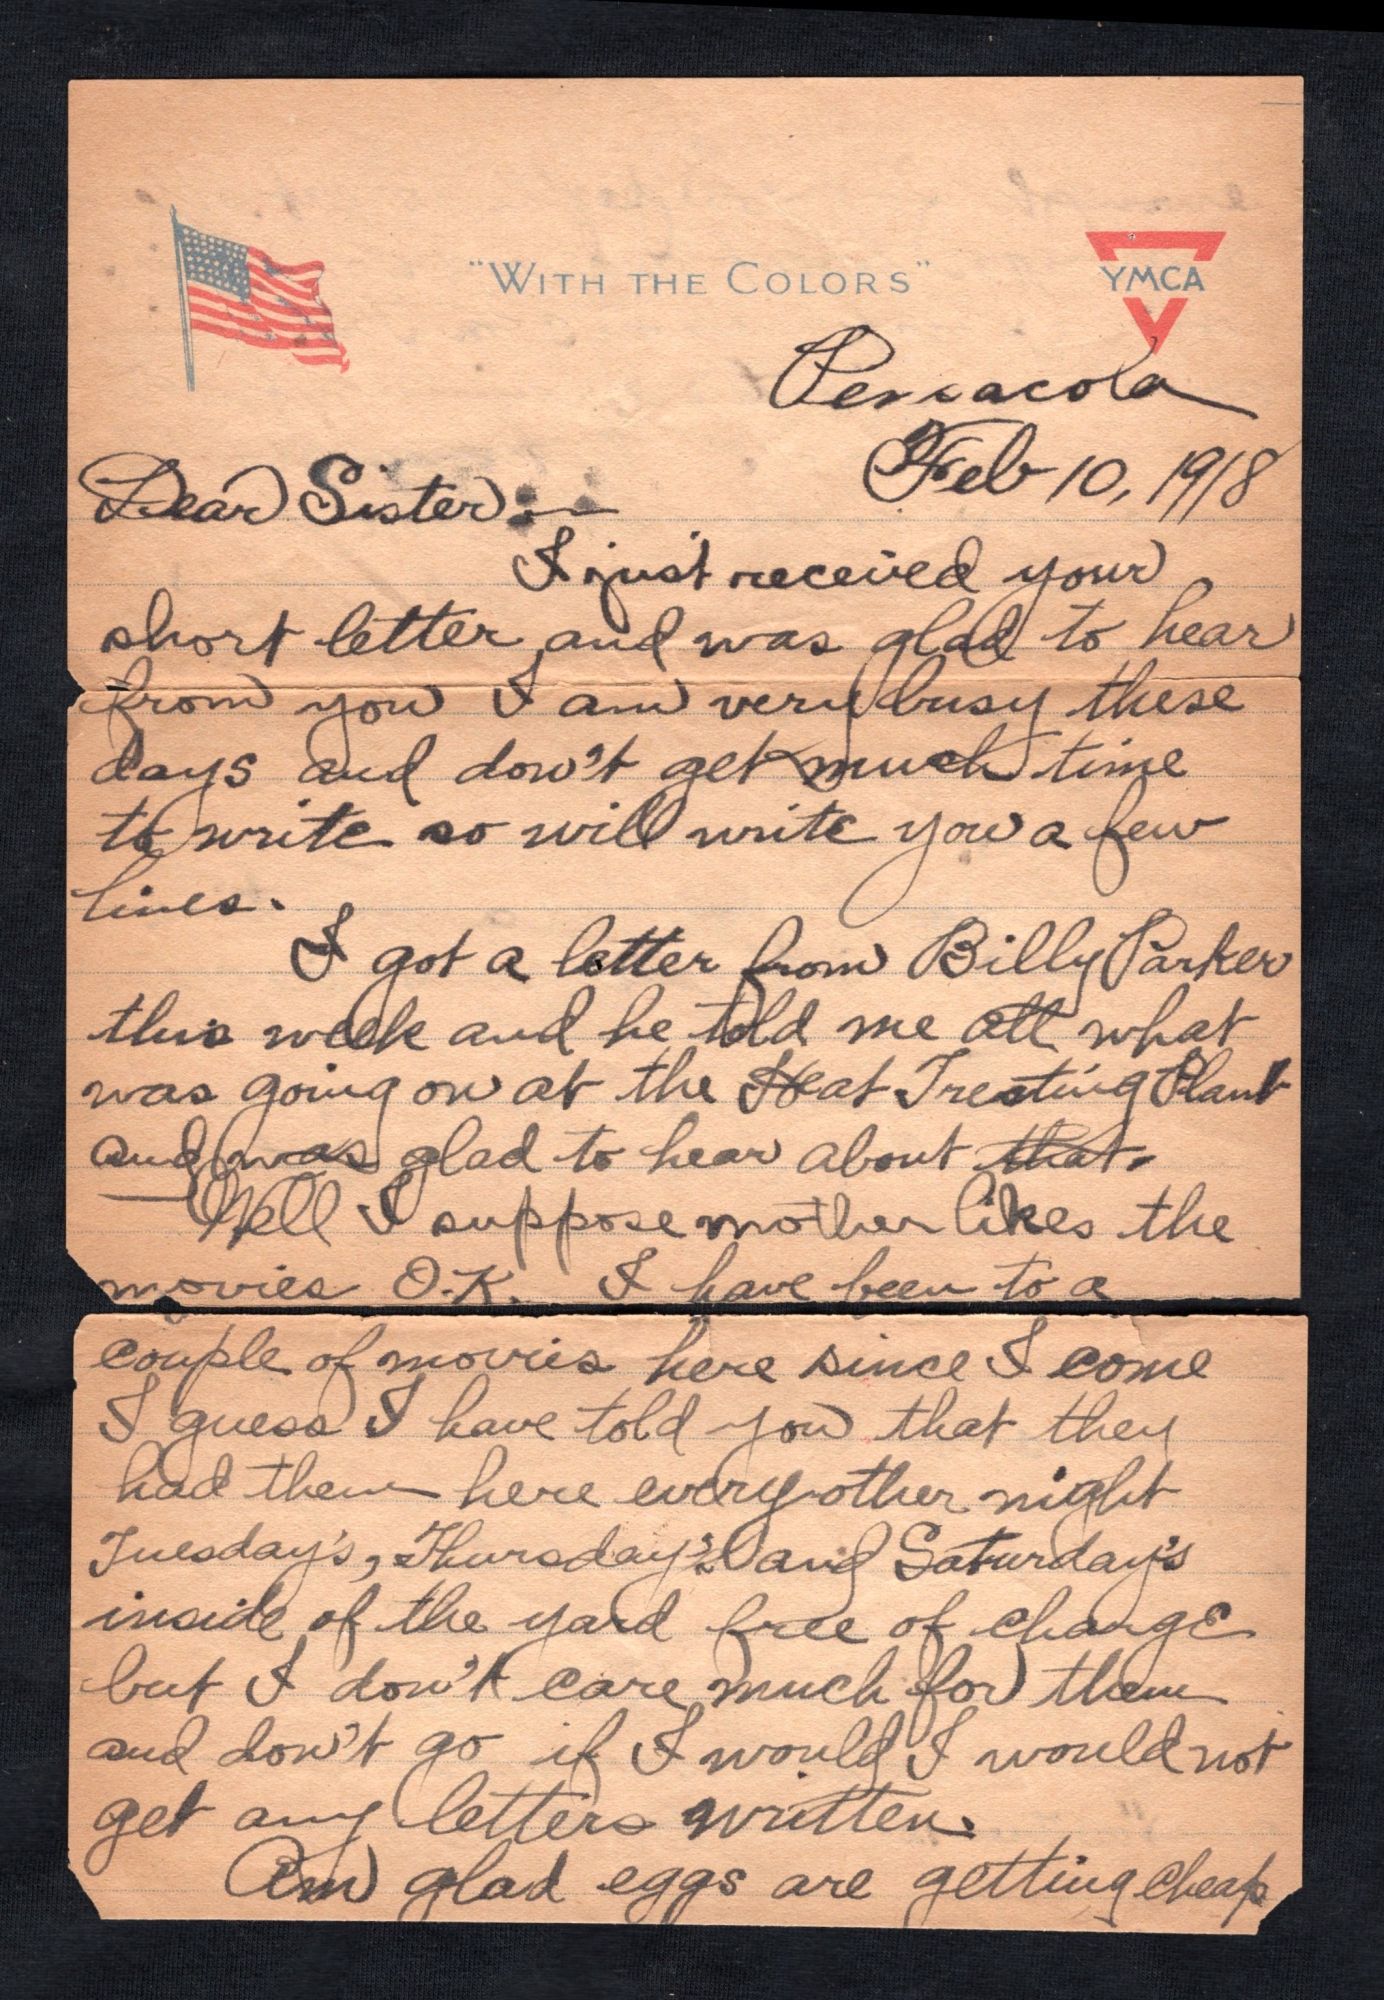 "WITH THE COLORS"
YMCA
Pensacola
Feb 10, 1918
Dear Sister:—
I just received your
short letter and was glad to hear
from you I am very busy these
days and don't get much time
to write so will write you a few
lines.
I got a letter from Billy Parker
this week and he told me all what
was going on at the Heat Treating Plant
and was glad to hear about that.
Well I suppose mother likes the
movies O.K. I have been to a
couple of movies here since I come
I guess I have told you that they
had them here every other night
Tuesday's, Thursday's and Saturday's
inside of the yard free of charge
but I don't care much for them
and don't go if I would I would not
get any letters written.
Am glad eggs are getting cheap